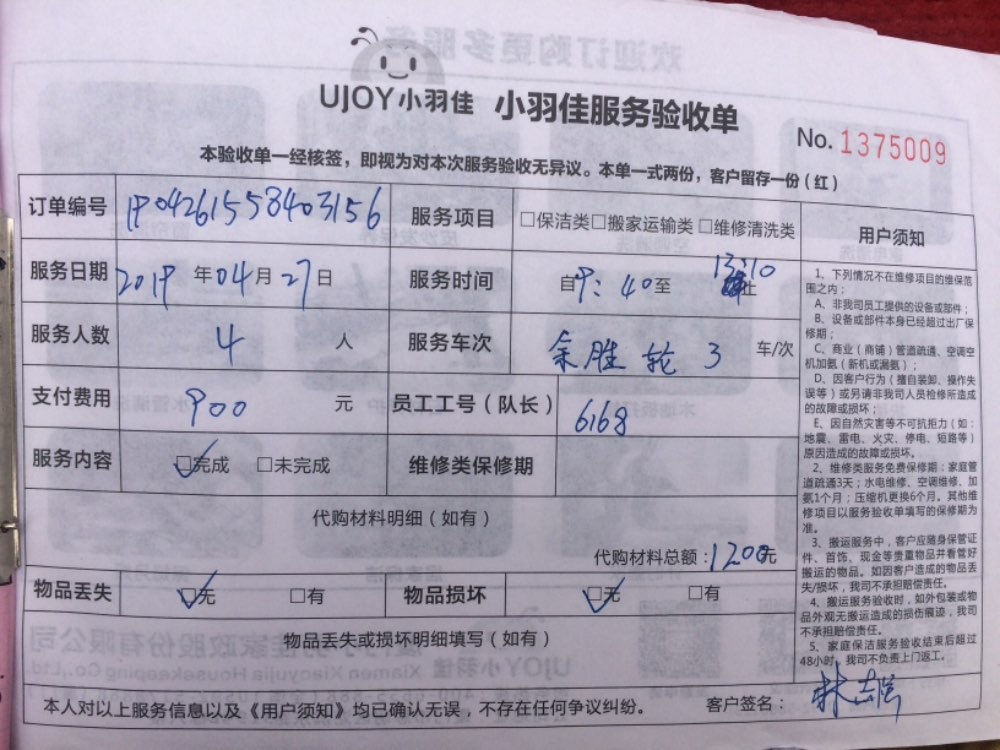 UJOY小羽佳 小羽佳服务验收单
No. 1375009
本验收单一经核签，即视为对本次服务验收无异议。本单一式两份，客户留存一份（红）
订单编号 1904261558403156 服务项目 □保洁类□搬家运输类□维修清洗类
服务日期 2019年04月27日 服务时间 自9：40至13:10止
服务人数 4人 服务车次 余胜轮 3 车/次
支付费用 900元 员工工号（队长） 6168
服务内容 ☑完成 □未完成 维修类保修期
代购材料明细（如有）
代购材料总额：1200元
物品丢失 ☑无 □有 物品损坏 ☑无 □有
物品丢失或损坏明细填写（如有）
本人对以上服务信息以及《用户须知》均已确认无误，不存在任何争议纠纷。 客户签名：
用户须知
1、下列情况不在维修项目的维保范
围之内；
A、非我司员工提供的设备或部件；
B、设备或部件本身已经超过出厂保
修期；
C、商业（商铺）管道疏通、空调空
机加氨（新机或漏氨）；
D、因客户行为（擅自装卸、操作失
误等）或另请非我司人员检修所造成
的故障或损坏；
E、因自然灾害等不可抗拒力（如：
地震、雷电、火灾、停电、短路等）
原因造成的故障或损坏。
2、维修类服务免费保修期：家庭管
道疏通3天；水电维修、空调维修、加
氨1个月；压缩机更换6个月。其他维
修项目以服务验收单填写的保修期为
准。
3、搬运服务中，客户应随身保管证
件、首饰、现金等贵重物品并看管好
搬运的物品。如因客户造成的物品丢
失/损坏，我司不承担赔偿责任。
4、搬运服务验收时，如外包装或物
品外观无搬运造成的损伤痕迹，我司
不承担赔偿责任。
5、家庭保洁服务验收结束后超过
48小时，我司不负责上门返工。